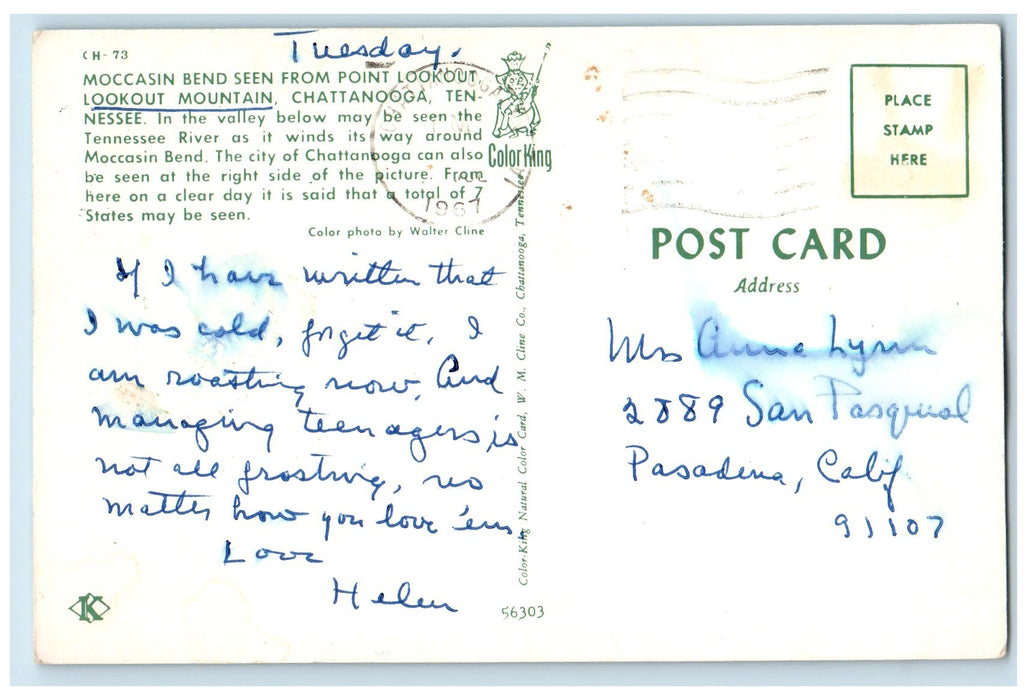 Tuesday.
CH-73
MOCCASIN BEND SEEN FROM POINT LOOKOUT
LOOKOUT MOUNTAIN, CHATTANOOGA, TEN-
NESSEE. In the valley below may be seen the
Tennessee River as it winds its way around
Moccasin Bend. The city of Chattanooga can also
be seen at the right side of the picture. From
here on a clear day it is said that a total of 7
States may be seen.
Color photo by Walter Cline
1967
Color King
If I have written that
I was cold, forget it. I
am roasting now. And
managing teenagers is
not all frosting, no
matter how you love 'em.
Love
Helen
K
Color-King Natural Color Card, W. M. Cline Co., Chattanooga, Tennessee
56303
PLACE
STAMP
HERE
POST CARD
Address
Mrs Anna Lynn
2889 San Pasqual
Pasadena, Calif
91107